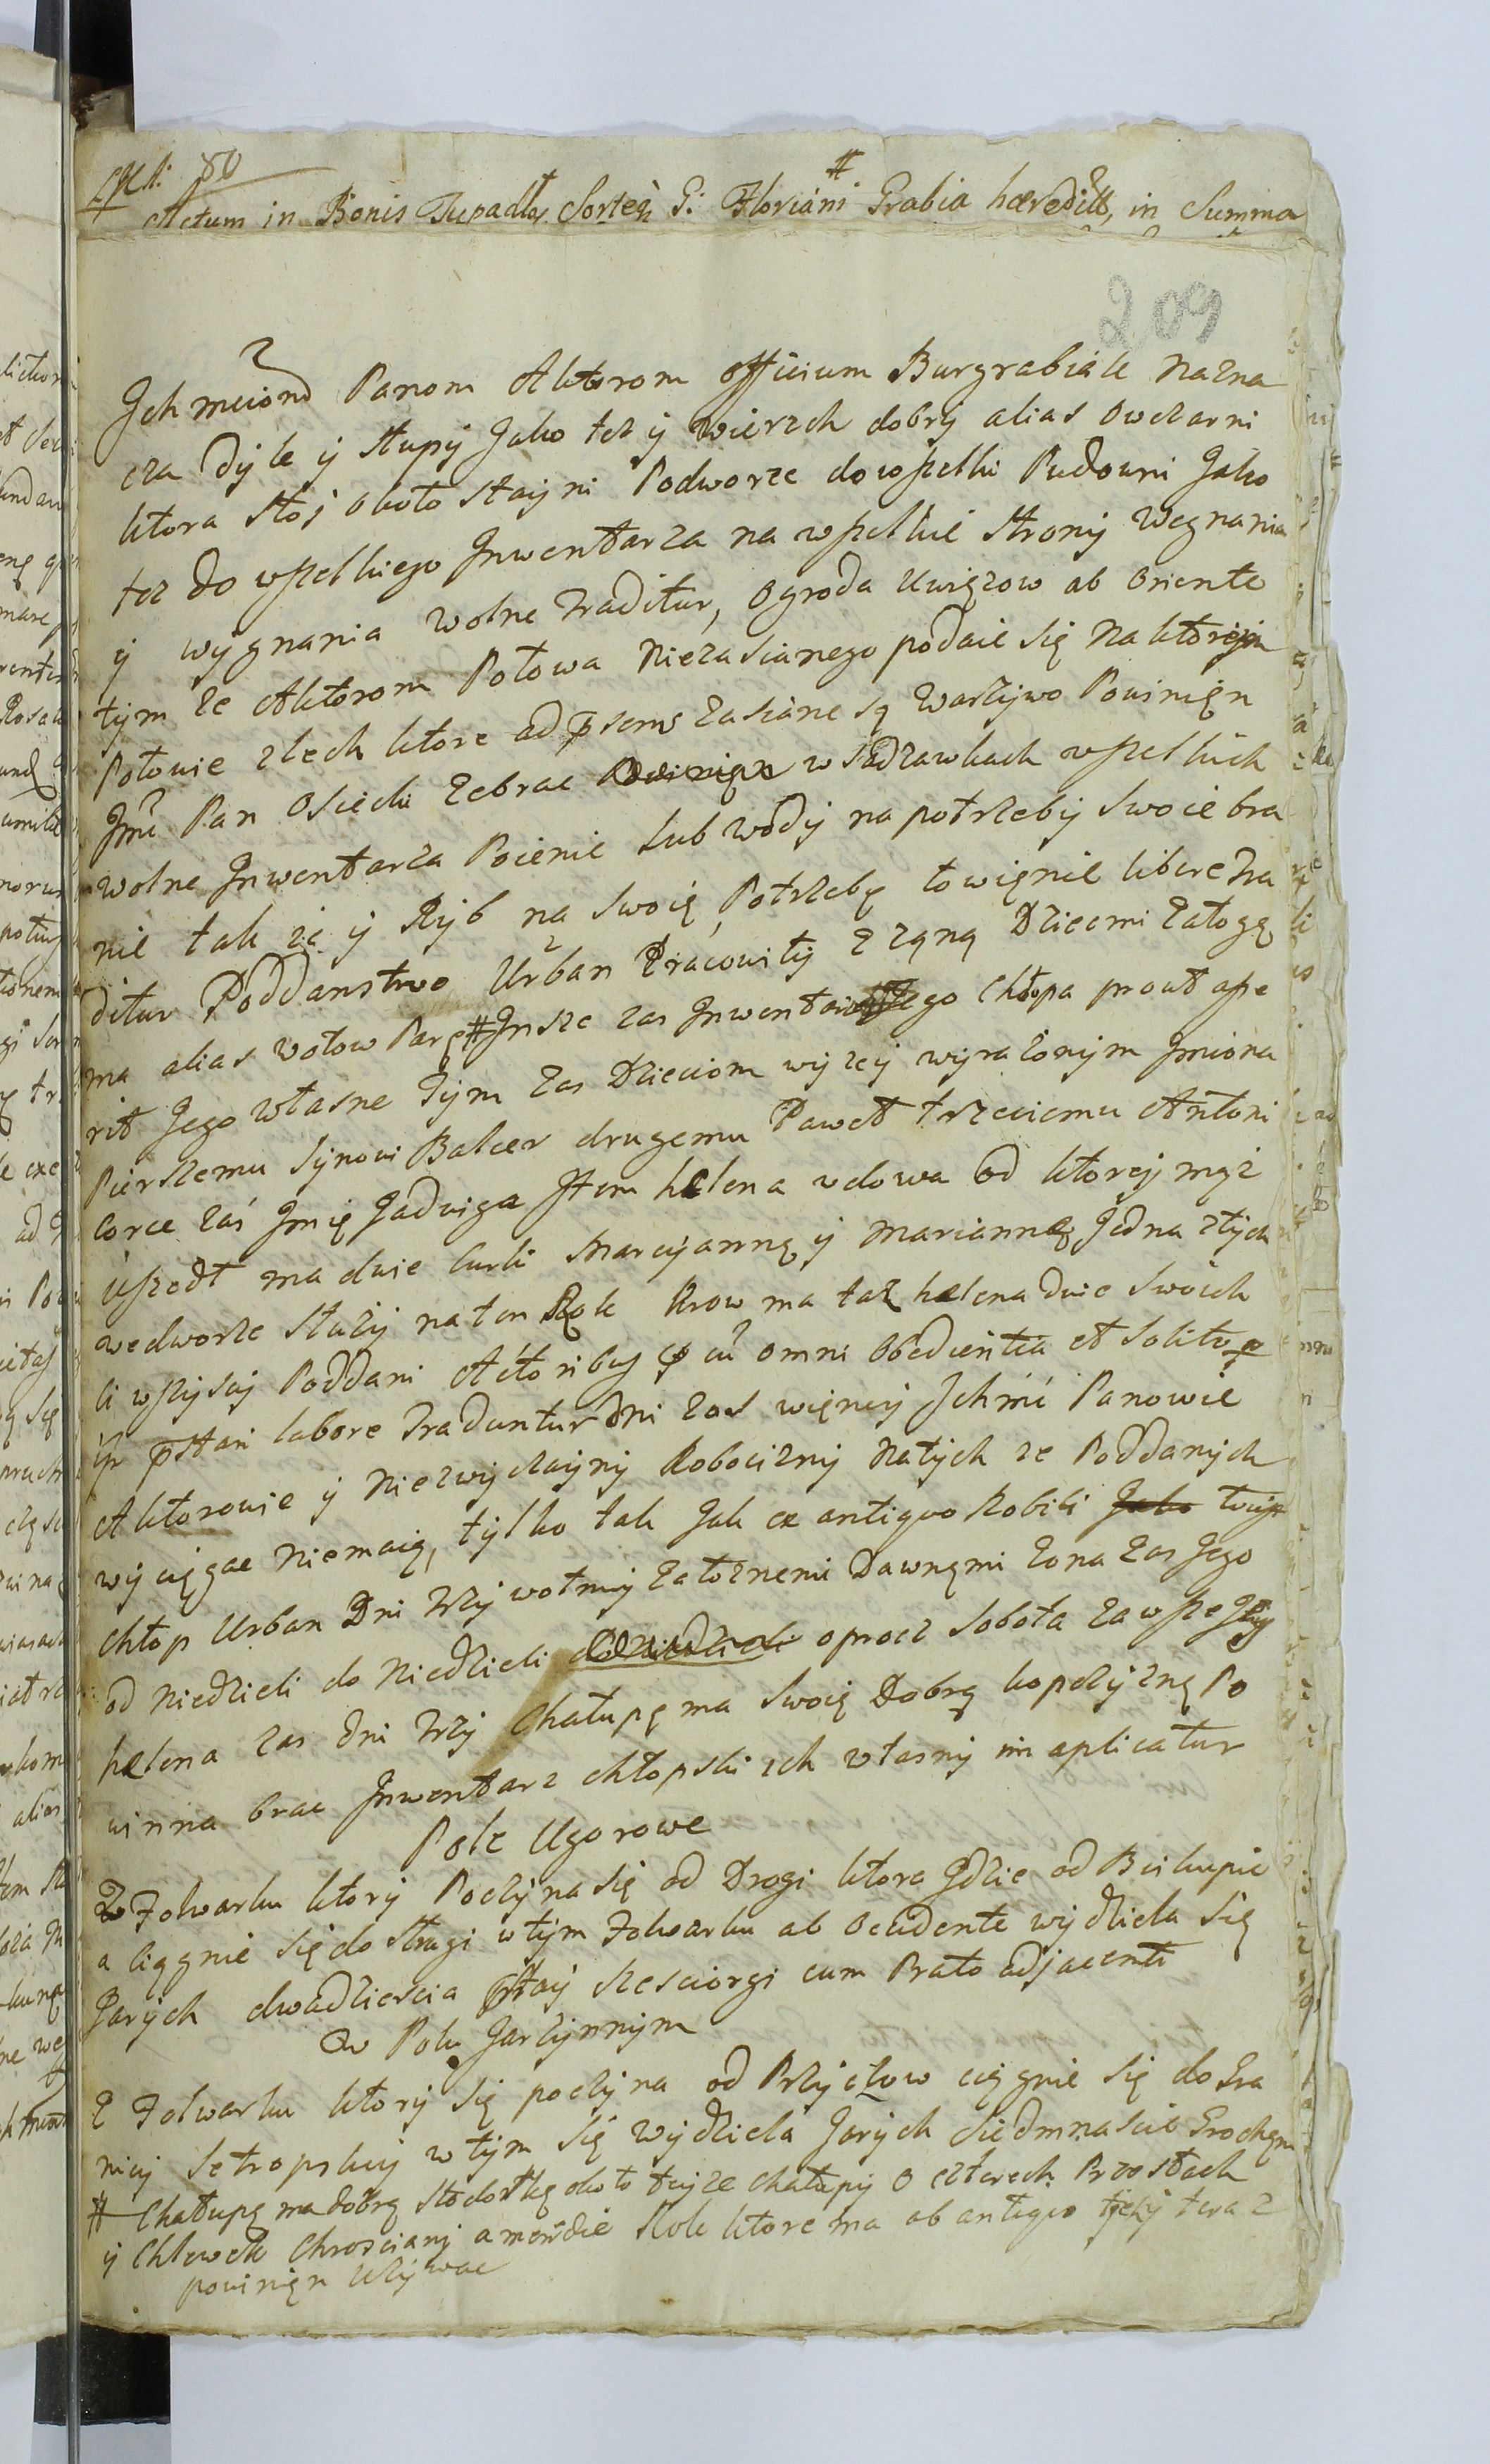 80
Actum in Bonis Tupadły Sortes G: Floriani # Grabia haeredit, in Summa
209
Ichmciom Panom Aktorom officium Burgrabiale nazna
cza dyle y słupy Jako tez y wierzch dobry alias Owczarni
ktora stoj około stayni Podworze do wszelki Budowni Jako
tez do wszelkiego Inwentarza na wszelkie strony wegnania
y wygnania wolne traditur, Ogroda Uwięzow ab Oriente
tym ze Aktorom Połowa niezasianego podaie się na ktorey
Połowie zlech ktore ad zasiane są Warzywo Powinięn
Jmć Pan Osiecki zebrac w Sadzawkach wszelkich
wolne Inwentarza Poienie lub wody na potrzeby swoie bra
nie tak ze y Ryb na swoię Potrzebę łowięnie libere tra
ditur Poddanstwo Urban Pracowity z zqną Dziecmi Załogę
ma alias wołow Parę # Insze zas Inwentarze tego Chłopa prout asse
rit Jego własne Tym zas Dzieciom wyzey wyrazonym Jmiona
Pierszemu Synowi Balcer drugemu Paweł trzeciemu Antoni
corce zaś Jmię Jadwiga Item helena wdowa od ktorey mąż
uszedł ma dwie curki Marcyannę y mariannę Jedna ztych
wedworze słuzy na ten Rok Krow ma taz helena dwie swoich
ci wszyscy Poddani Actoribus cu omni Obedientia et Solito
labore traduntur dni zas więncy Ichmć Panowie
Aktorowie y niezwyczayny Robocizny natych ze Poddanych
wyciągac niemaią, tylko tak Jak ex antiquo Robili
chłop Urban Dni trzy wołmy załoznemi Dawnęmi zona zas Jego
od niedzieli do niedzieli oprocz Sobota zawsze
helena zas dni trzy Chałupę ma swoię Dobrą kopczyznę Po
winna brac Inwentarz chłopski ich własny im aplicatur
Pole Ugorowe
W Folwarku ktory Poczyna się od Drogi ktora Jdzie od Biskupic
a ciągnie się do strugi w tym Folwarku ab Occidente wydziela się
Jarych dwadziescia stay szesciorgi cum Prato adjacenti
w Polu Jarzynnym
Z Folwarku ktory się poczyna od ciągnie się do Gra
nicy w tym się wydziela Jarych siedmnascie
# Chałupę ma dobrą stodołkę około teyze chałupy o czterech
y chlewek chrosciany Role ktore ma ab antiquo teraz
powinięn Uzywac